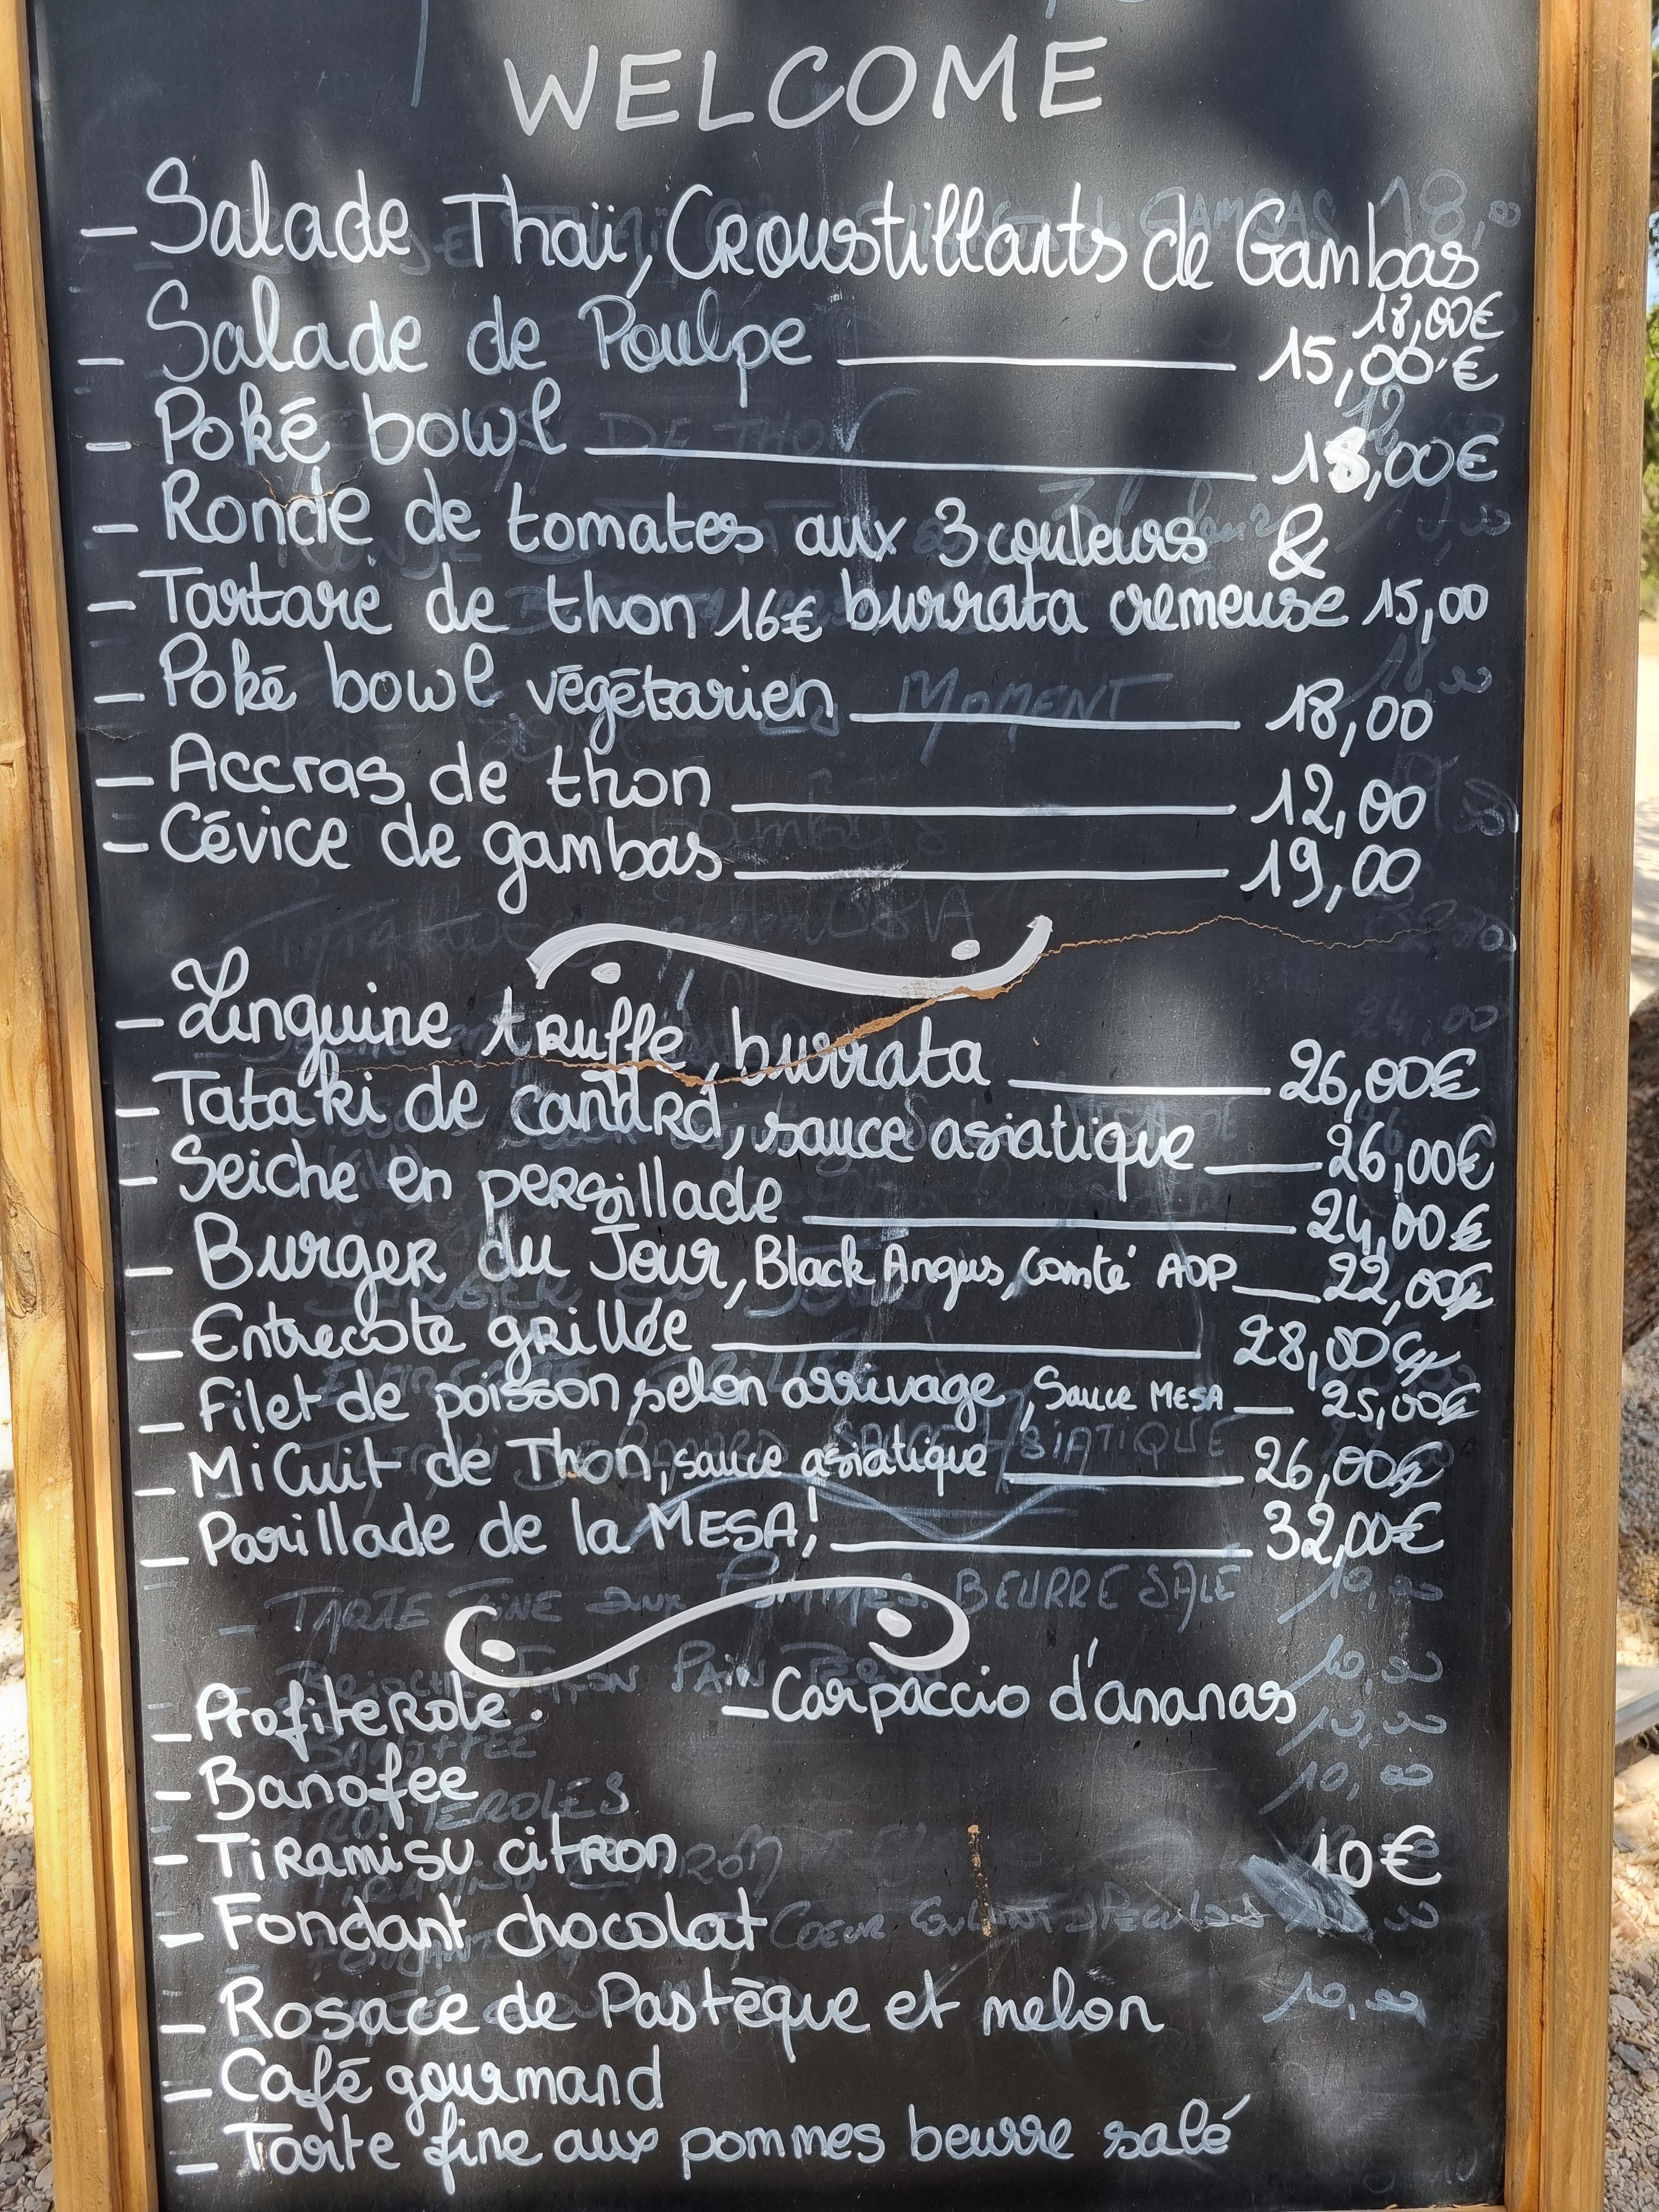 WELCOME
- Salade Thaï, Croustillants de Gambas
18,00€
- Salade de Poulpe 15,00€
- Poké bowl 18,00€
- Ronde de tomates aux 3 couleurs &
- Tartare de thon 16€ burrata crémeuse 15,00
- Poké bowl végétarien 18,00
- Accras de thon 12,00
- Cévice de gambas 19,00
- Linguine truffe, burrata 26,00€
- Tataki de canard, sauce asiatique 26,00€
- Seiche en persillade 24,00€
- Burger du Jour, Black Angus, Comté AOP 22,00€
- Entrecote grillée 28,00€
- Filet de poisson, selon arrivage, Sauce MESA 25,00€
- MiCuit de Thon, sauce asiatique 26,00€
- Parillade de la MESA! 32,00€
TARTE FINE aux POMMES BEURRE SALÉ 10,00
- Profiterole. - Carpaccio d'ananas
- Banofee
- Tiramisu citron 10€
- Fondant chocolat
- Rosace de Pastèque et melon
- Café gourmand
- Tarte fine aux pommes beurre salé